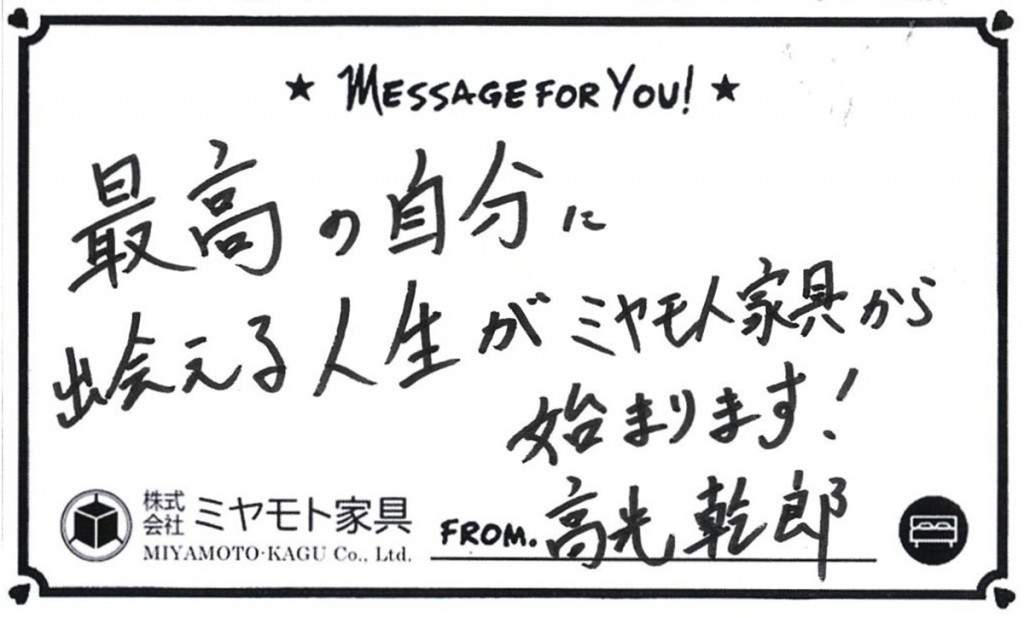 ★ MESSAGE FOR YOU! ★
最高の自分に
出会える人生がミヤモト家具から
始まります!
株式会社 ミヤモト家具
MIYAMOTO・KAGU Co., Ltd.
FROM. 高光乾郎